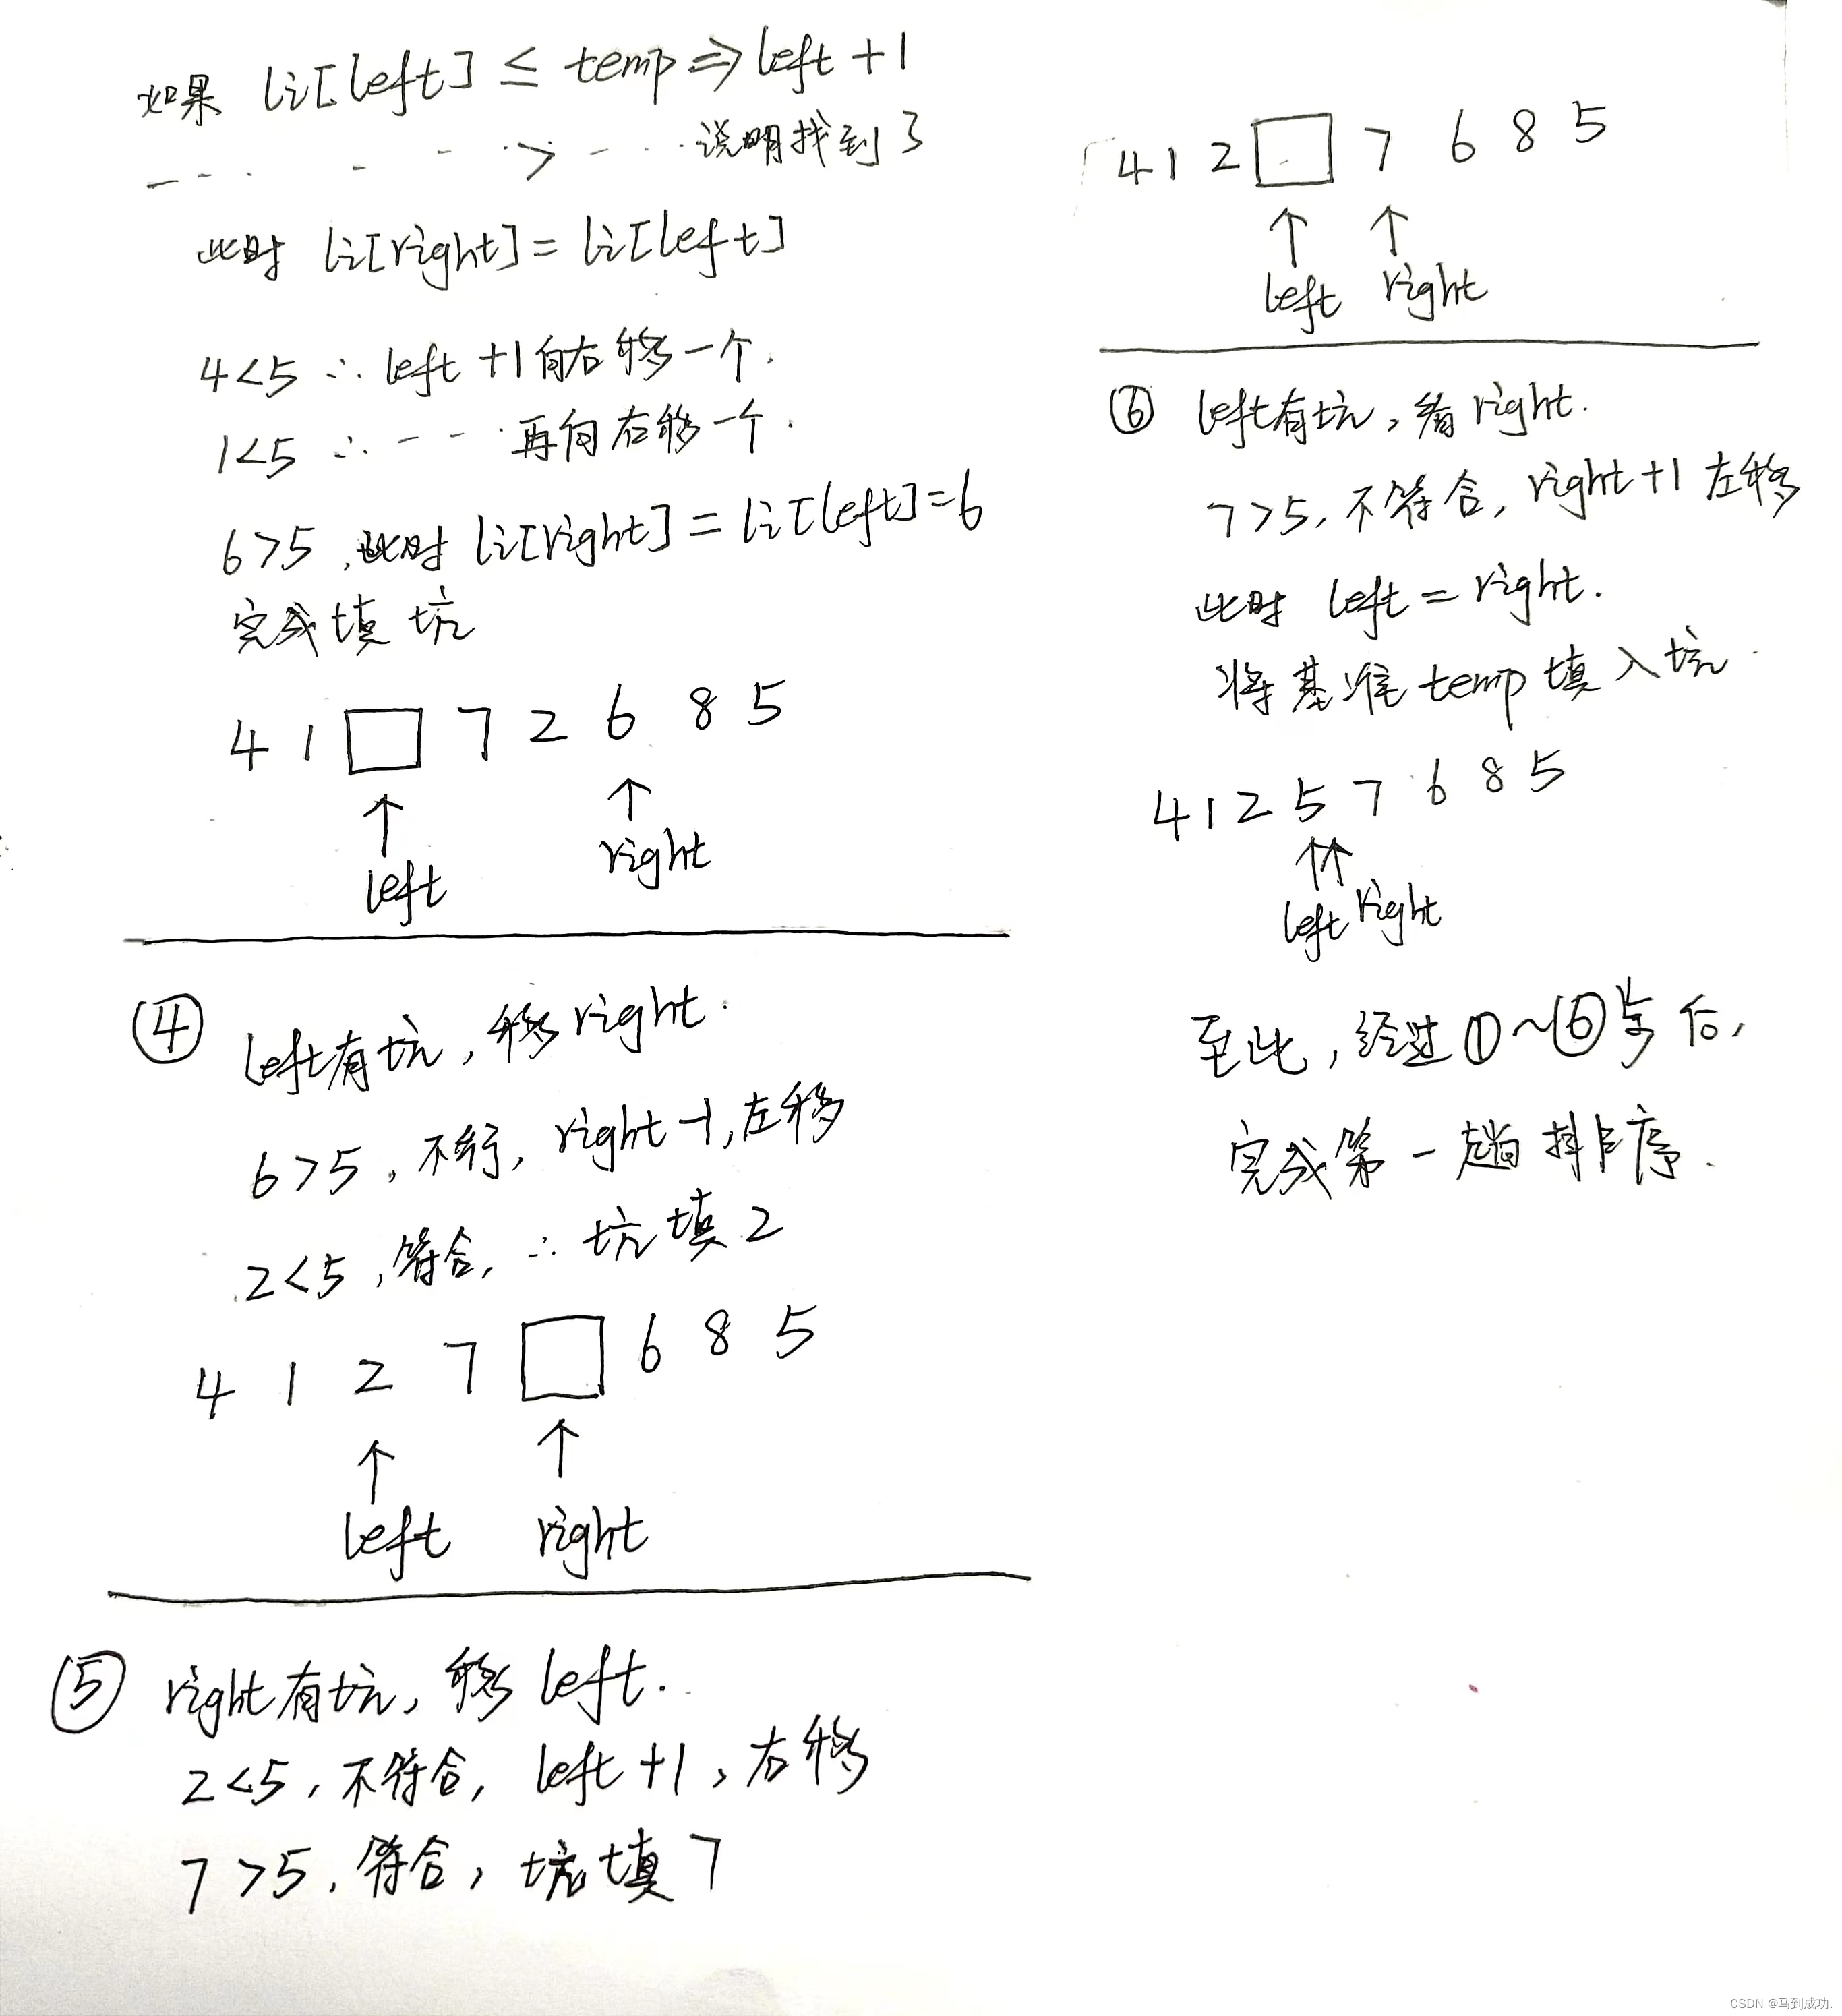 如果 li[left] ≤ temp ⇒ left +1
—··· - -·> -···说明找到了
此时 li[right] = li[left]
4<5 ∴ left +1向右移一个.
1<5 ∴ - - ·再向右移一个.
6>5,此时 li[right] = li[left]=6
完成填坑
4 1 □ 7 2 6 8 5
↑ ↑
left right
④ left有坑,移right.
6>5,不行,right-1,左移
2<5,符合,∴坑填2
4 1 2 7 □ 6 8 5
↑ ↑
left right
⑤ right有坑,移left.
2<5,不符合,left+1,右移
7>5,符合,坑填7
4 1 2 □ 7 6 8 5
↑ ↑
left right
⑥ left有坑,看right.
7>5,不符合,right+1左移
此时 left = right.
将基准temp填入坑.
4 1 2 5 7 6 8 5
↑↑
left right
至此,经过①~⑥步后,
完成第一趟排序.
CSDN @马到成功.